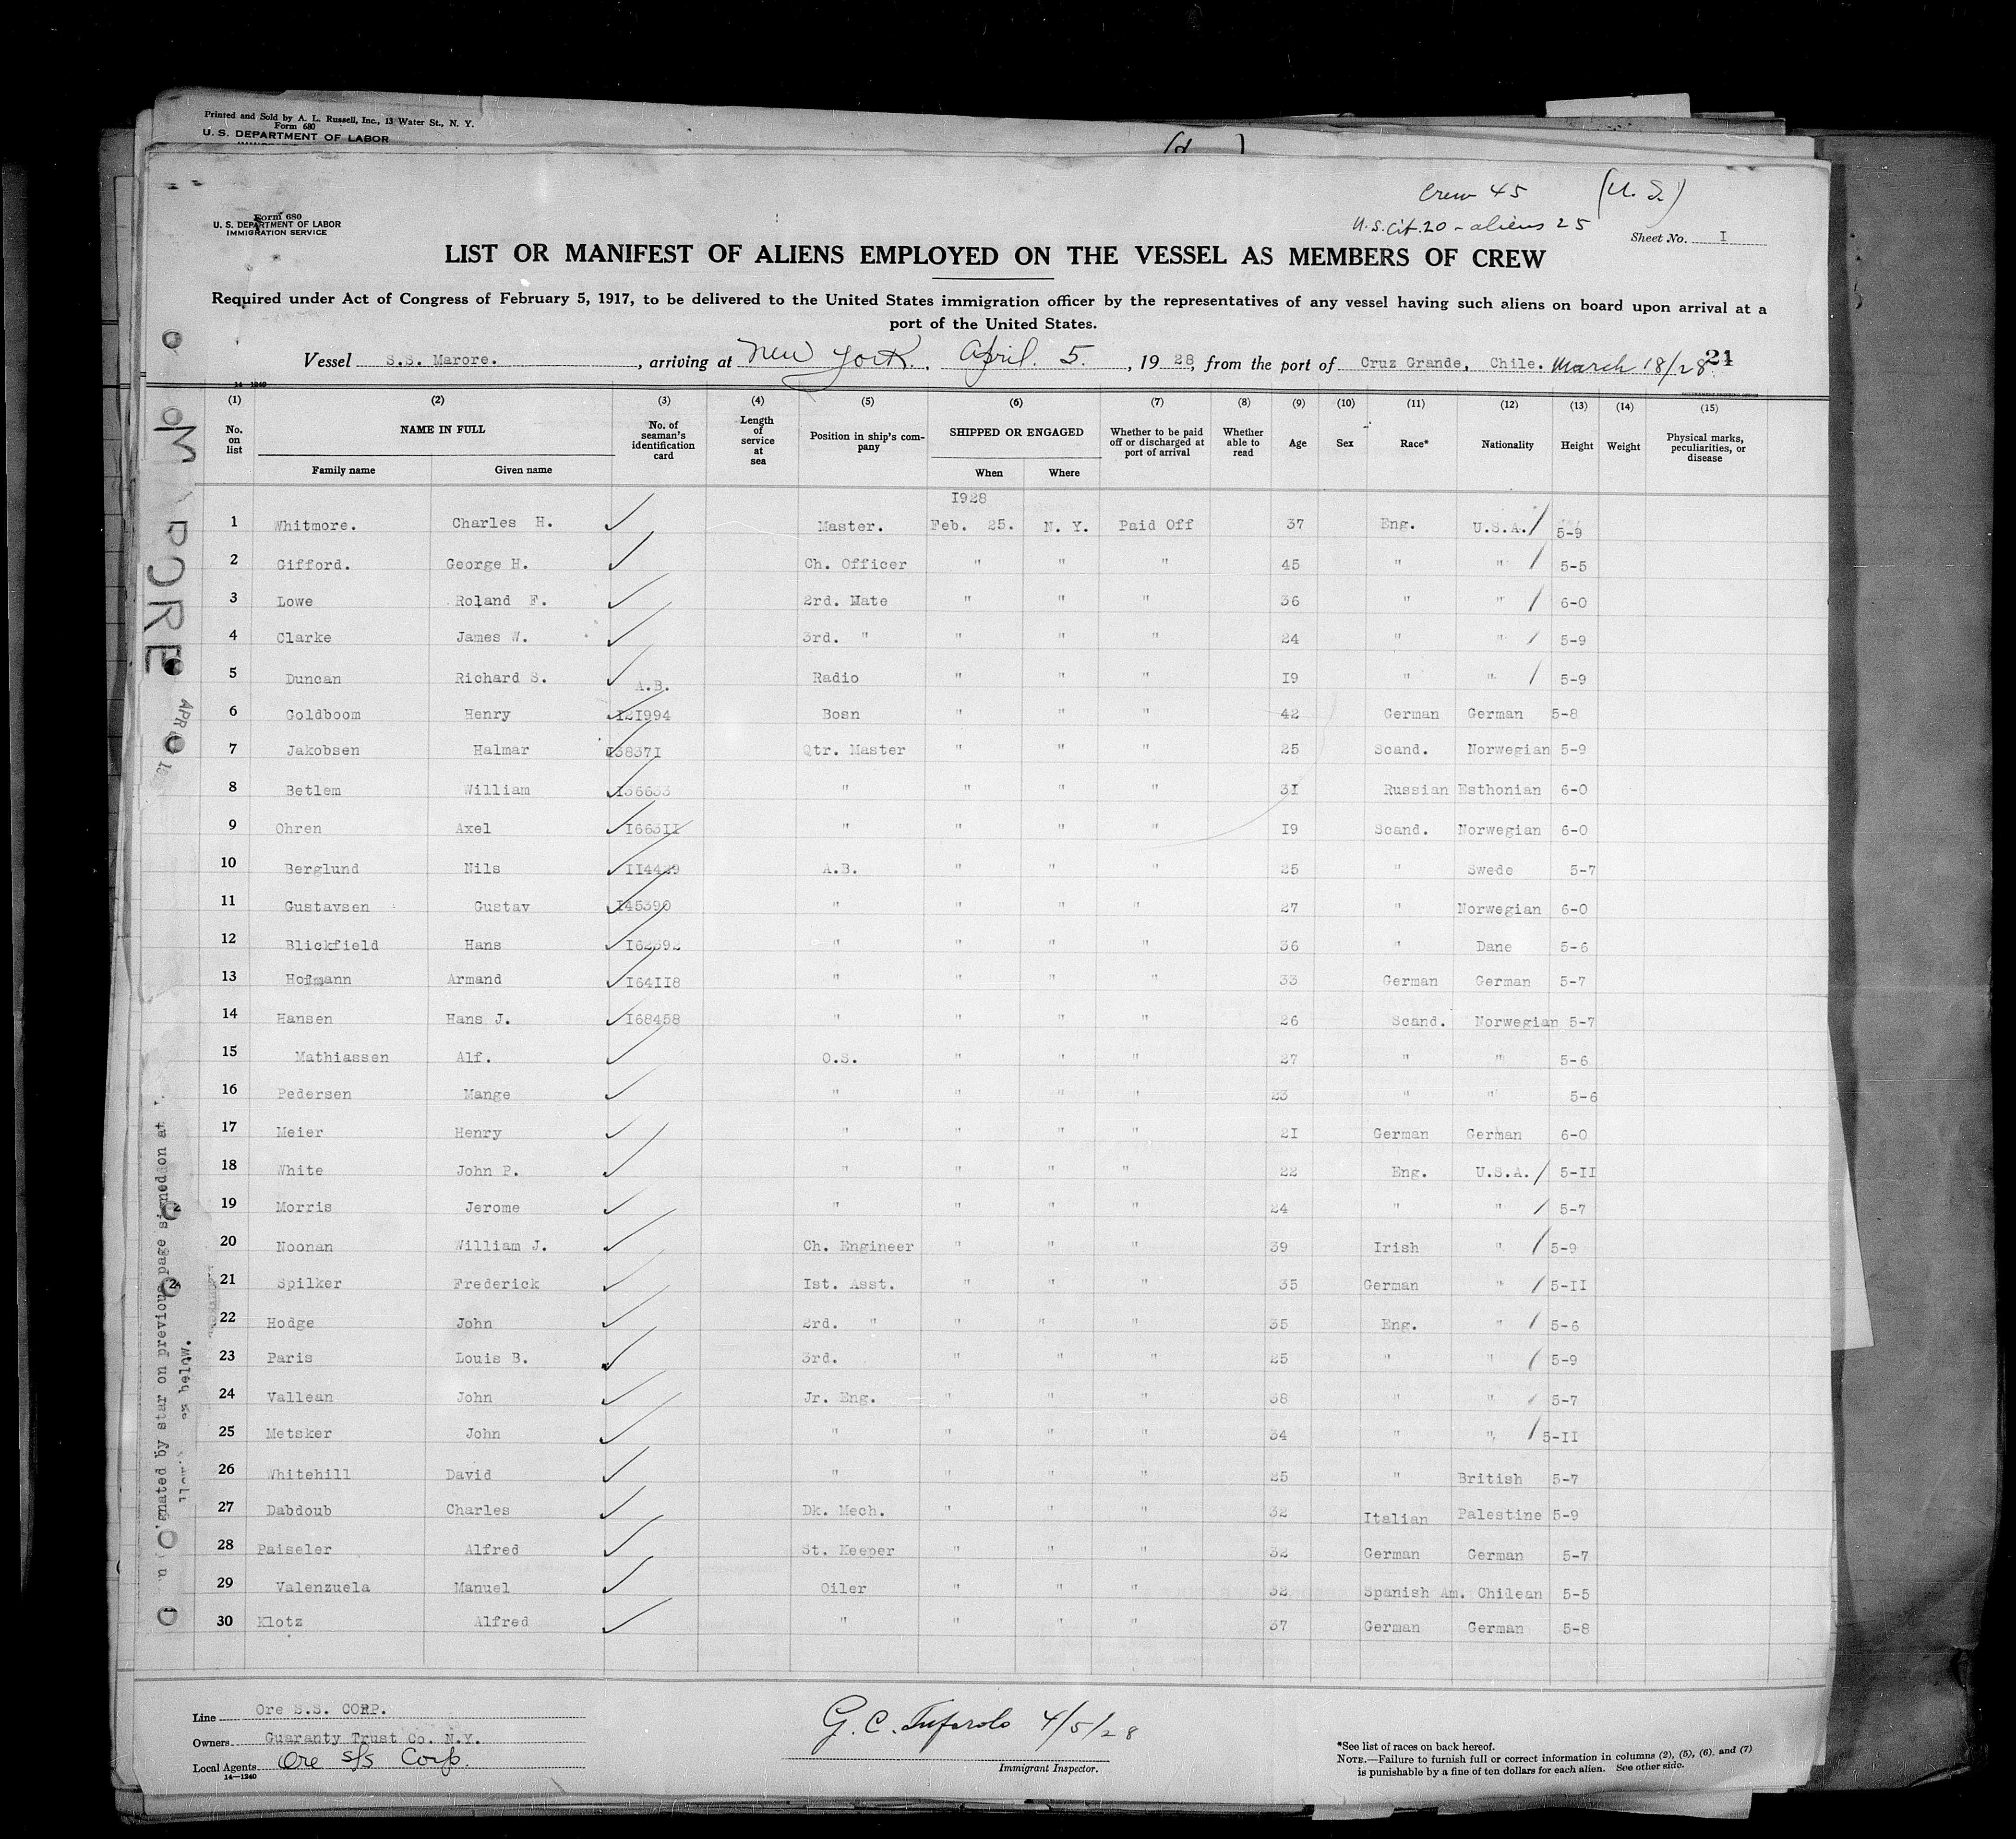 Printed and Sold by A. L. Russell, Inc., 13 Water St., N. Y.
Form 680
U. S. DEPARTMENT OF LABOR
Crew 45 (U. S.)
U.S. Cit. 20 - aliens 25
Form 680
U. S. DEPARTMENT OF LABOR
IMMIGRATION SERVICE
Sheet No. I
LIST OR MANIFEST OF ALIENS EMPLOYED ON THE VESSEL AS MEMBERS OF CREW
Required under Act of Congress of February 5, 1917, to be delivered to the United States immigration officer by the representatives of any vessel having such aliens on board upon arrival at a
port of the United States.
Vessel S.S. Marore. , arriving at New York. , April. 5. , 19 28, from the port of Cruz Grande, Chile. March 18/28 21
14-1240
(1) (2) (3) (4) (5) (6) (7) (8) (9) (10) (11) (12) (13) (14) (15)
No. on list NAME IN FULL Family name Given name No. of seaman's identification card Length of service at sea Position in ship's company SHIPPED OR ENGAGED When Where Whether to be paid off or discharged at port of arrival Whether able to read Age Sex Race* Nationality Height Weight Physical marks, peculiarities, or disease
1928
1 Whitmore. Charles H. Master. Feb. 25. N. Y. Paid Off 37 Eng. U.S.A. 5-9
2 Gifford. George H. Ch. Officer " " " 45 " " 5-5
3 Lowe Roland F. 2rd. Mate " " " 36 " " 6-0
4 Clarke James W. 3rd. " " " " 24 " " 5-9
5 Duncan Richard S. Radio " " " 19 " " 5-9
A.B.
6 Goldboom Henry 121994 Bosn " " " 42 German German 5-8
7 Jakobsen Halmar 138371 Qtr. Master " " " 25 Scand. Norwegian 5-9
8 Betlem William 136633 " " " " 31 Russian Esthonian 6-0
9 Ohren Axel 166311 " " " " 19 Scand. Norwegian 6-0
10 Berglund Nils 114429 A.B. " " " 25 " Swede 5-7
11 Gustavsen Gustav 145390 " " " " 27 " Norwegian 6-0
12 Blickfield Hans 162392 " " " " 36 " Dane 5-6
13 Hofmann Armand 164118 " " " " 33 German German 5-7
14 Hansen Hans J. 168458 " " " " 26 Scand. Norwegian 5-7
15 Mathiassen Alf. O.S. " " " 27 " " 5-6
16 Pedersen Mange " " " " 23 " " 5-6
17 Meier Henry " " " " 21 German German 6-0
18 White John P. " " " " 22 Eng. U.S.A. 5-11
19 Morris Jerome " " " " 24 " " 5-7
20 Noonan William J. Ch. Engineer " " " 39 Irish " 5-9
21 Spilker Frederick Ist. Asst. " " " 35 German " 5-11
22 Hodge John 2rd. " " " " 35 Eng. " 5-6
23 Paris Louis B. 3rd. " " " 25 " " 5-9
24 Vallean John Jr. Eng. " " " 38 " " 5-7
25 Metsker John " " " " 34 " " 5-11
26 Whitehill David " " " " 25 " British 5-7
27 Dabdoub Charles Dk. Mech. " " " 32 Italian Palestine 5-9
28 Paiseler Alfred St. Keeper " " " 32 German German 5-7
29 Valenzuela Manuel Oiler " " " 32 Spanish Am. Chilean 5-5
30 Klotz Alfred " " " " 37 German German 5-8
Line Ore S.S. CORP.
Owners Guaranty Trust Co. N.Y.
Local Agents Ore S/S Corp.
14-1240
G. C. Tufarolo 4/5/28
Immigrant Inspector.
*See list of races on back hereof.
NOTE.—Failure to furnish full or correct information in columns (2), (5), (6), and (7)
is punishable by a fine of ten dollars for each alien. See other side.
MARORE
APR
gnated by star on previous page signed on at
as below.